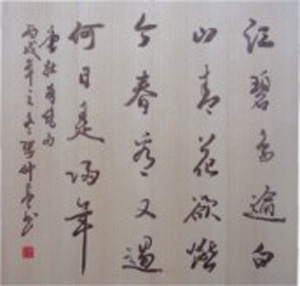 江碧鸟逾白
山青花欲燃
今春看又過
何日是归年
唐杜甫绝句
丙戌年之冬